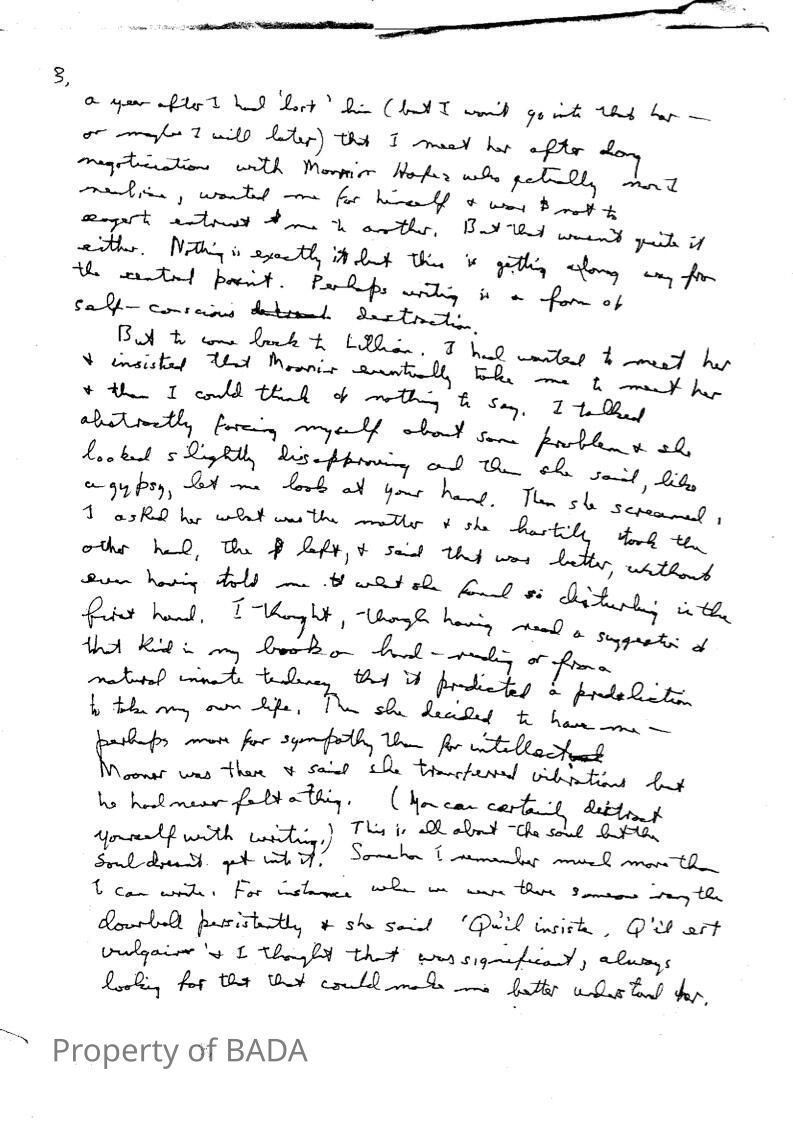 3,
a year after I had 'lost' him (but I won't go into that here —
or maybe I will later) that I meet her after long
negociations with who actually nor I
, wanted me for himself & was not to
entrust me to another. But that wasn't quite it
either. Nothing is exactly it but this is getting along way from
the central point. Perhaps writing is a form of
self-conscious destraction.
But to come back to Lillian. I had wanted to meet her
& insisted that eventually take me to meet her
& then I could think of nothing to say. I talked
abstractly forcing myself about some problem & she
looked slightly disapproving and then she said, like
a gypsy, let me look at your hand. Then she screamed,
I asked her what was the matter & she hastily took the
other hand, the left, & said that was better, without
even having told me what she found so disturbing in the
first hand. I thought, though having read a suggestion of
that kind in my book on hand-reading or from a
natural innate tendency that it predicted a predeliction
to take my own life. Then she decided to have me —
perhaps more for sympathy than for intellectual
was there & said she transferred vibrations but
he had never felt a thing. (You can certainly destract
yourself with writing.) This is all about the soul but the
soul doesn't get into it. Somehow I remember much more than
I can write. For instance when we were there someone rang the
doorbell persistently & she said 'Qu'il insiste, Q'il est
vulgaire' & I thought that was significant, always
looking for that that could make me better understand her.
Property of BADA